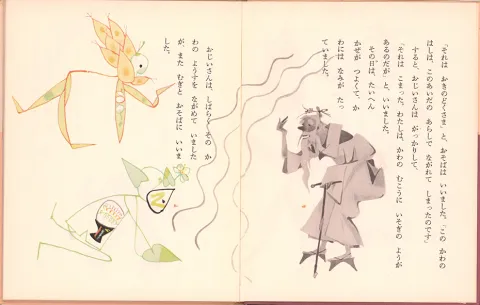 「それは おきのどくさま」と、おそばは いいました。「この かわの
はしは、このあいだの あらしで ながれて しまったのです」
すると、おじいさんは がっかりして、
「それは こまった。わたしは、かわの むこうに いそぎの ようが
あるのだが」と、いいました。
その日は、たいへん
かぜが つよくて、か
わには なみが たっ
ていました。
おじいさんは、しばらく その か
わの ようすを ながめて いました
が、また むぎと おそばに いいま
した。